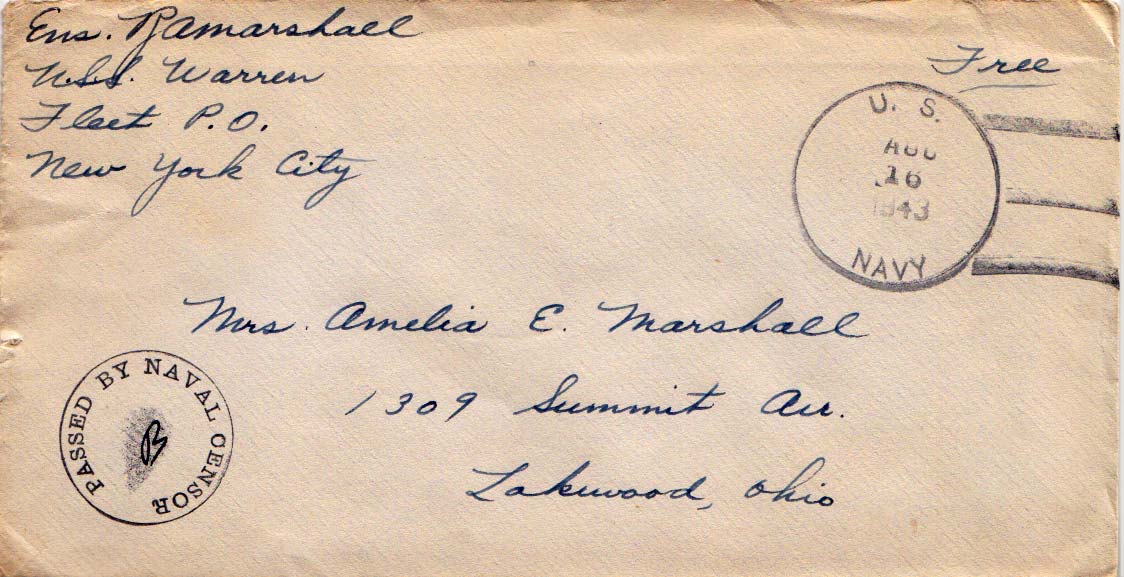 Ens. RAMarshall
U.S.S. Warren
Fleet P.O.
New York City
Free
U. S.
AUG
16
1943
NAVY
Mrs. Amelia E. Marshall
1309 Summit Av.
Lakewood, Ohio
PASSED BY NAVAL CENSOR
B